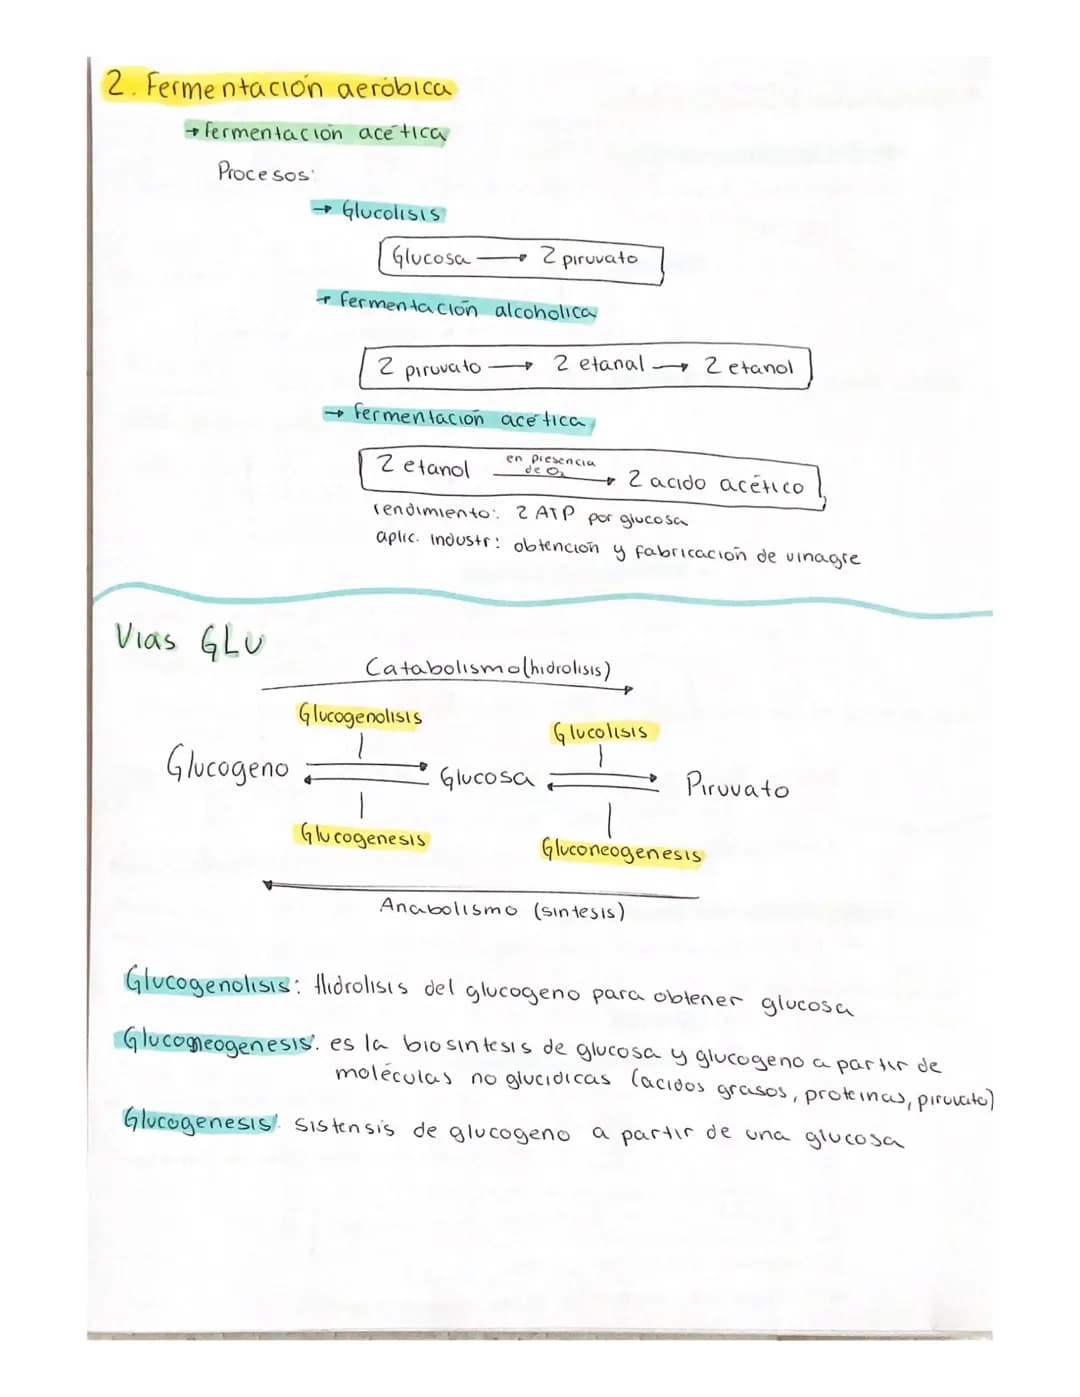 2. Fermentación aeróbica
→ fermentación acética
Procesos:
→ Glucolisis
Glucosa → 2 piruvato
→ fermentación alcoholica
2 piruvato → 2 etanal → 2 etanol
→ fermentación acética
2 etanol en presencia de O₂ → 2 acido acético
rendimiento: 2 ATP por glucosa
aplic. industr: obtención y fabricación de vinagre
Vias GLU
Catabolismo (hidrolisis)
Glucogenolisis
Glucolisis
Glucogeno
Glucosa
Piruvato
Glucogenesis
Gluconeogenesis
Anabolismo (sintesis)
Glucogenolisis: Hidrolisis del glucogeno para obtener glucosa
Gluconeogenesis: es la biosintesis de glucosa y glucogeno a partir de
moléculas no glucidicas (acidos grasos, proteinas, piruvato)
Glucogenesis: sistensis de glucogeno a partir de una glucosa